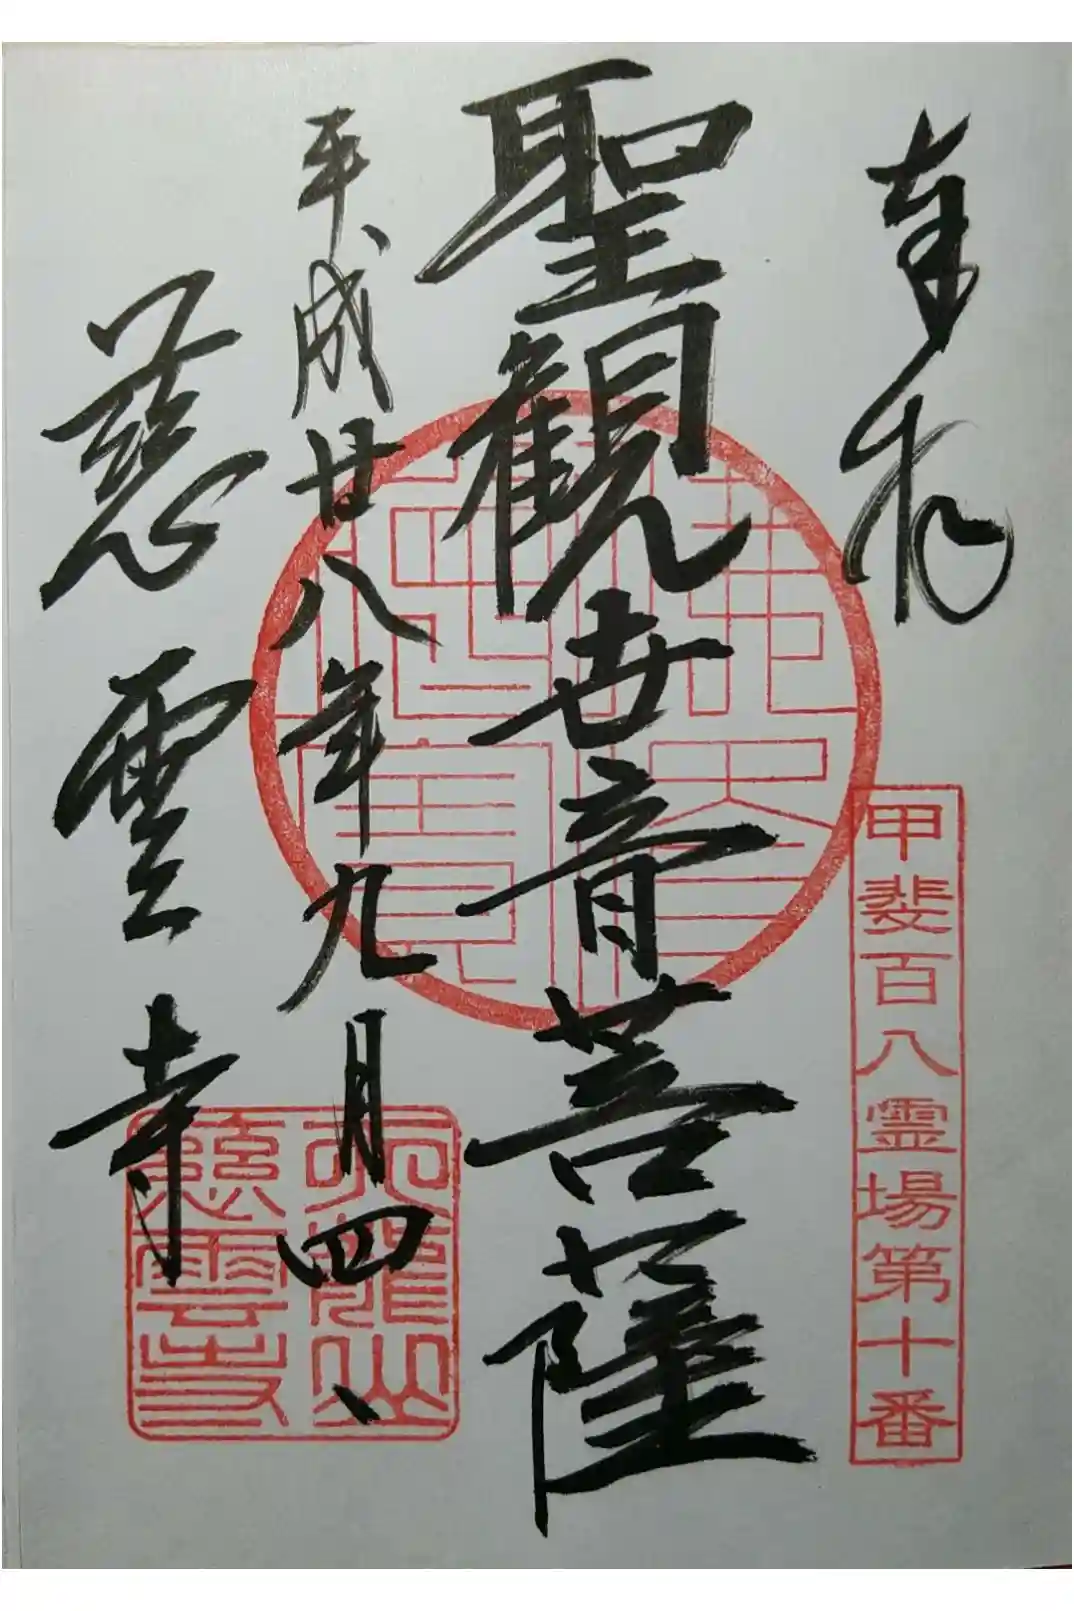 奉拝
甲斐百八霊場第十番
聖観世音菩薩
平成廿八年九月四、
慈雲寺
天龍山
慈雲寺